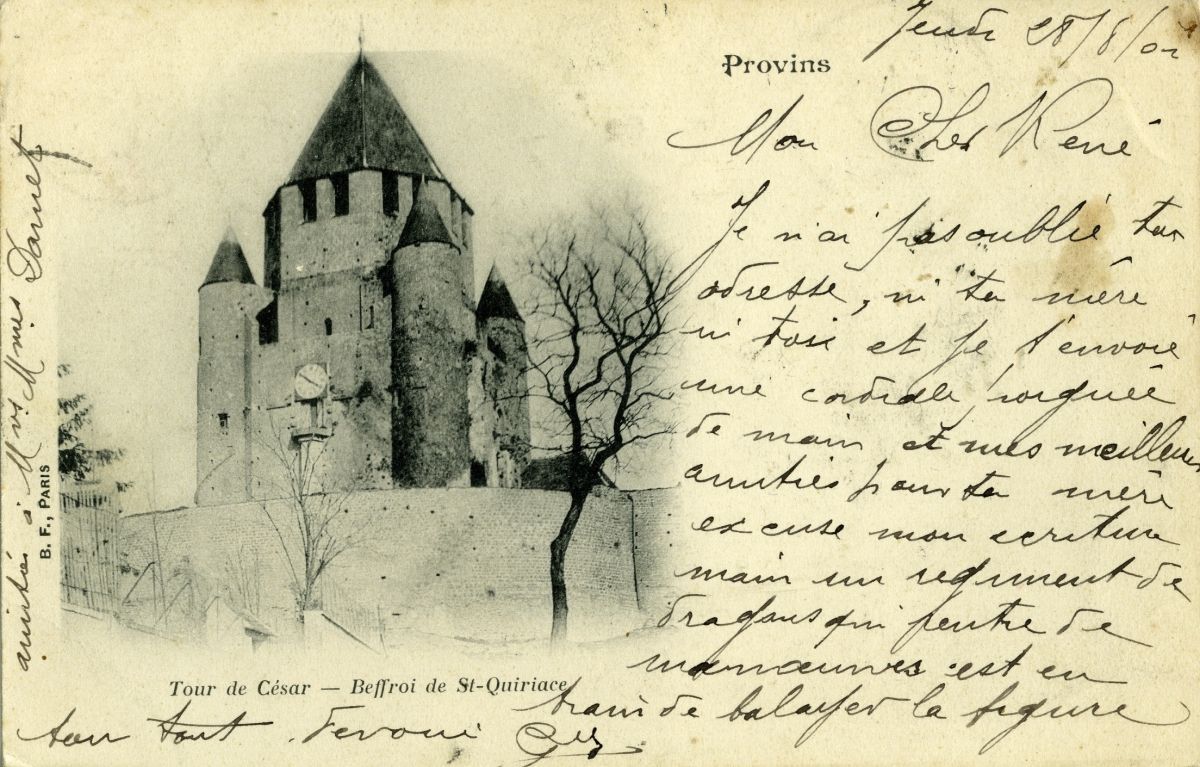 Provins
Jeudi 28/8/02
Mon Cher René
Je n'ai pas oublié ton
adresse, ni ta mère
ni toi et je t'envoie
une cordiale poignée
de main et mes meilleures
amitiés pour ta mère
excuse mon ecriture
main un regiment de
dragons qui rentre de
manœuvres est en
train de balayer la figure
ton tout devoué
amitiés à Mr et Mmes
B. F., PARIS
Tour de César — Beffroi de St-Quiriace